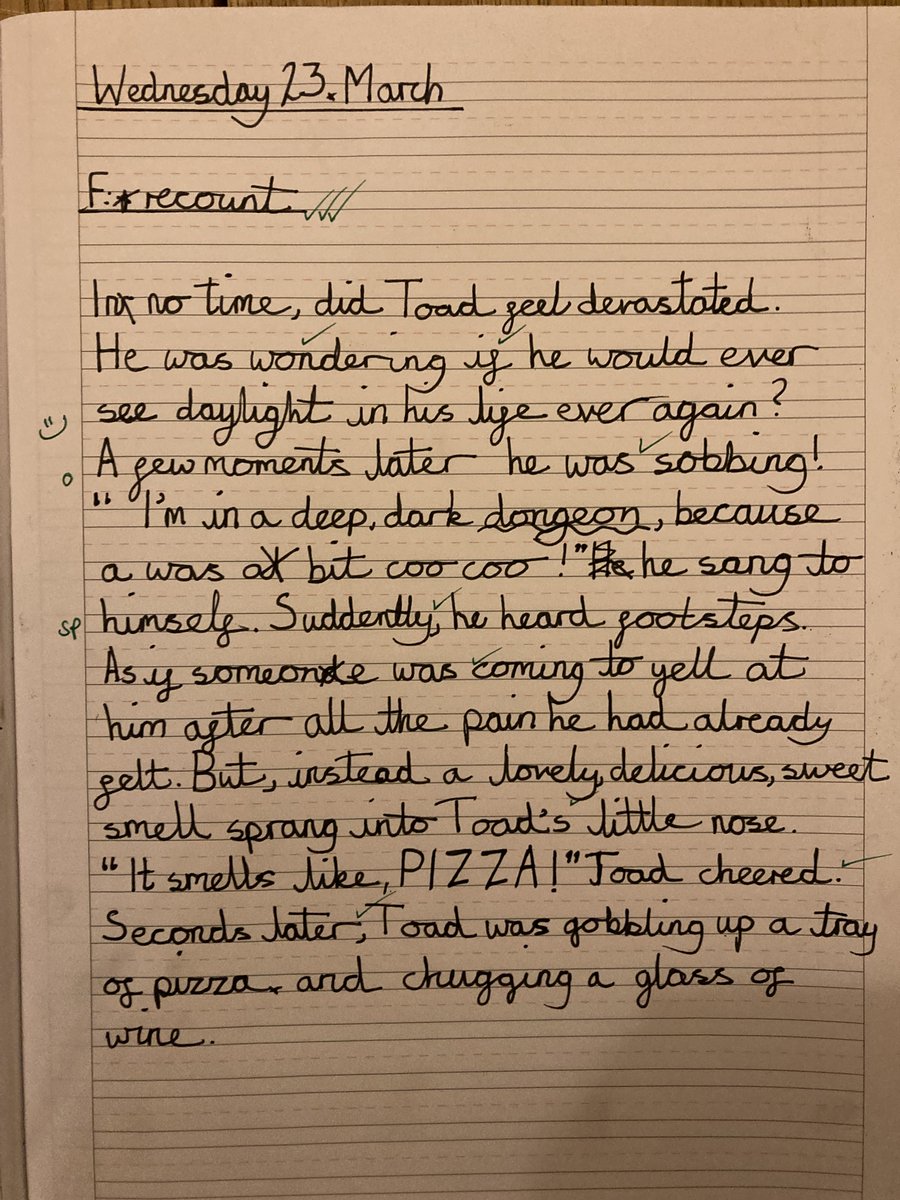 Wednesday 23. March
F: recount
In no time, did Toad feel devastated.
He was wondering if he would ever
see daylight in his life ever again?
A few moments later he was sobbing!
"I'm in a deep, dark dongeon, because
a was a bit coo coo!" he sang to
sp himself. Suddently, he heard footsteps.
As if someone was coming to yell at
him after all the pain he had already
felt. But, instead a lovely, delicious, sweet
smell sprang into Toad's little nose.
"It smells like, PIZZA!" Toad cheered.
Seconds later, Toad was gobbling up a tray
of pizza and chugging a glass of
wine.